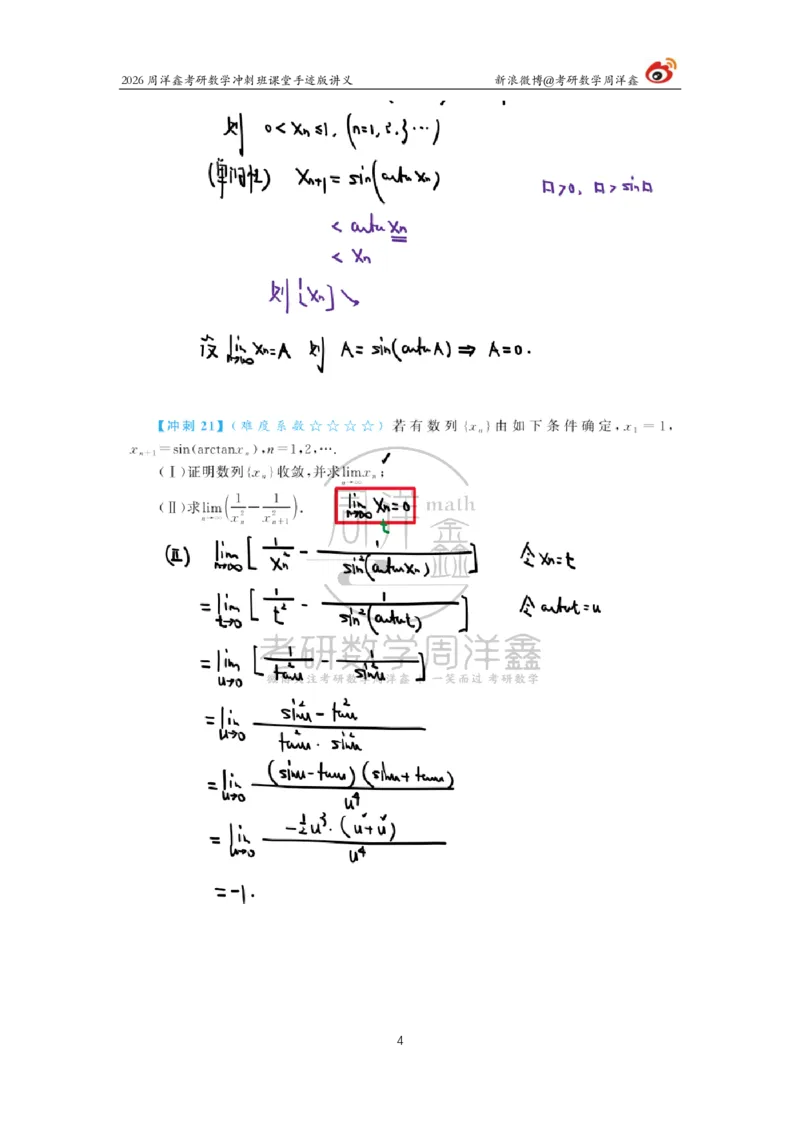 2026 周洋鑫考研数学冲刺班课堂手迹版讲义 新浪微博@考研数学周洋鑫
则 0<Xn≤1, (n=1,2,3…)
(单调性) Xn+1 = sin(arctan Xn) □>0, □>sin□
< arctan Xn
< Xn
则{Xn}↘
设 lim n→∞ Xn=A 则 A=sin(arctan A) ⇒ A=0.
【冲刺 21】(难度系数☆☆☆☆) 若有数列{xₙ}由如下条件确定,x₁=1,
xₙ₊₁=sin(arctanxₙ),n=1,2,….
(Ⅰ)证明数列{xₙ}收敛,并求lim n→∞ xₙ; ✓
(Ⅱ)求lim n→∞ (1/xₙ² − 1/xₙ₊₁²). lim n→∞ Xn=0
t
math
周洋鑫
(Ⅱ) lim n→∞ [1/Xn² − 1/sin²(arctan Xn)] 令 Xn=t
=lim t→0 [1/t² − 1/sin²(arctan t)] 令 arctan t=u
考研数学周洋鑫
=lim u→0 [1/tan²u − 1/sin²u]
一笑而过 考研数学
=lim u→0 (sin²u − tan²u)/(tan²u · sin²u)
=lim u→0 (sinu−tanu)(sinu+tanu)/u⁴
=lim u→0 −½u³·(u+u)/u⁴
=−1.
4